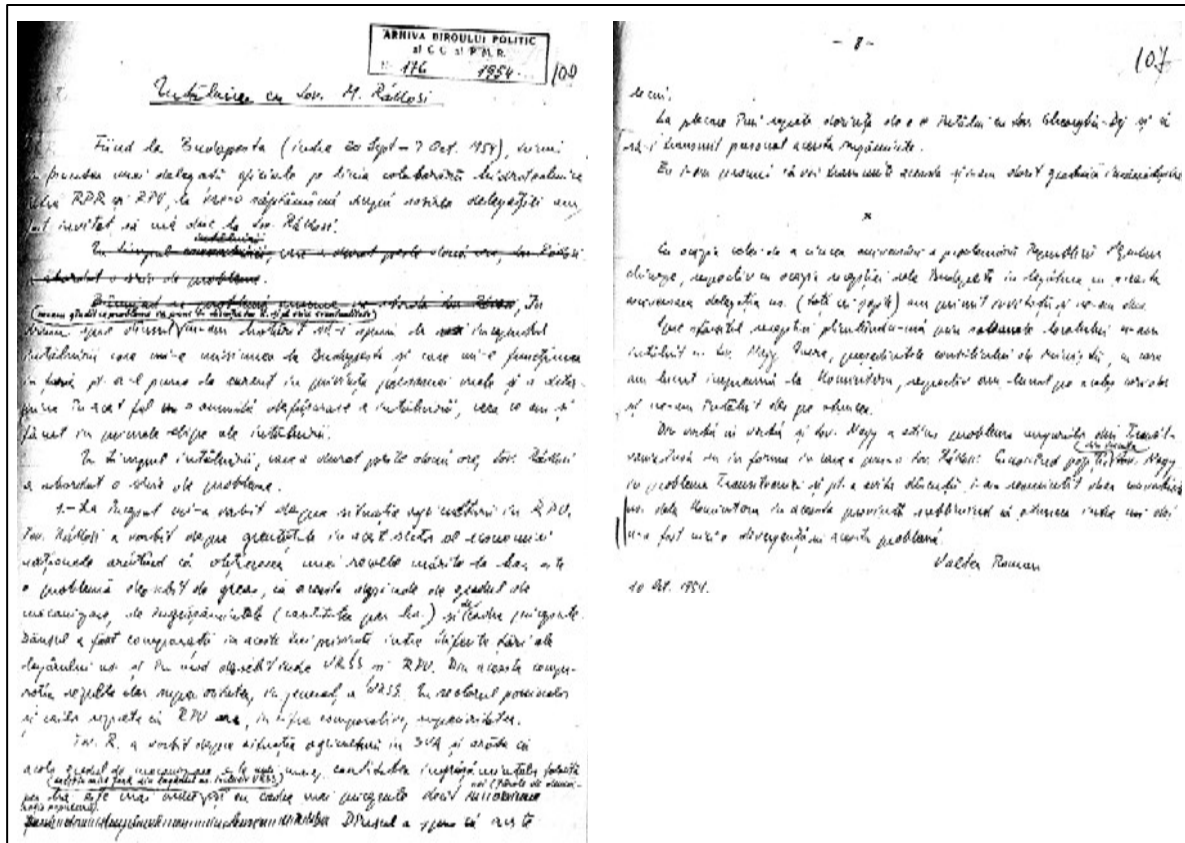 ARHIVA BIROULUI POLITIC
al C.C. al P.M.R.
176 1954
100
Întâlnirea cu tov. M. Rákosi
Fiind la Budapesta (între 20 Sept – 7 Oct. 1954), trimis
în fruntea unei delegații oficiale pe linia colaborării hidrotehnice
între RPR și RPU, la vre-o săptămână după sosirea delegației am
fost invitat să mă duc la tov. Rákosi.
întâlnirii
În timpul care a durat peste două ore, tov. Rákosi
a abordat o serie de probleme.
drum spre dânsul m-am hotărît să-i spun la începutul
întâlnirii care mi-e misiunea la Budapesta și care mi-e funcțiunea
în țară pt. a-l pune la curent în privința persoanei mele și a deter-
mina în acest fel o anumită desfășurare a întâlnirii, ceea ce am și
făcut în primele clipe ale întâlnirii.
În timpul întâlnirii, care a durat peste două ore, tov. Rákosi
a abordat o serie de probleme.
1.- La început mi-a vorbit despre situația agriculturii în RPU.
Tov. Rákosi a vorbit despre greutățile în acest sector al economiei
naționale arătând că obținerea unei recolte mărite la ha. este
o problemă deosebit de grea, că aceasta depinde de gradul de
mecanizare, de îngrășăminte (cantitatea per ha.) și de cadre pricepute.
Dânsul a făcut comparații în aceste trei privințe între diferite țări ale
lagărului ns. și în mod deosebit între URSS și RPU. Din aceasta compa-
rație rezultă clar superioritatea, în general, a URSS. În sectorul
și RPU are, în cifre comparative, superioritatea.
Tov. R. a vorbit despre situația agriculturii în SUA și arăta că
acolo gradul de mecanizare e mai mare, cantitatea îngrășămintelor folosită
per ha. este mai mare și cu cadre mai pricepute decît
Dânsul a spus că
- 8 -
107
La plecare exprimă dorința de a se întâlni cu tov. Gheorghiu-Dej și că
să-i transmit personal aceasta rugăminte.
Eu i-am promis că voi transmite aceasta și
x
Cu ocazia celei de a cincea aniversări a proclamării Republicii Populare
Chineze, respectiv cu ocazia recepției dela Budapesta în legătura cu aceasta
aniversare delegația ns. (toți cei șapte) am primit invitații și ne-am dus.
Spre sfârșitul recepției plimbându-mă prin saloanele localului m-am
întâlnit cu tov. Nagy Imre, președintele consiliului de miniștri, cu care
am lucrat împreună la Komintern, respectiv am lucrat pe același coridor
și ne-am întâlnit des pe atunci.
Din vorbă în vorbă și tov. Nagy a atins problema ungurilor din Transil-
vania însă nu în forma în care a pus-o tov. Rákosi. Cunoscând tov. Nagy
în problema Transilvaniei și pt. a evita discuții, i-am reamintit
ns. dela Komintern în aceasta privință subliniind că atunci între noi doi
n-a fost nici o divergență în aceasta problemă.
Valter Roman
10 Oct. 1954.